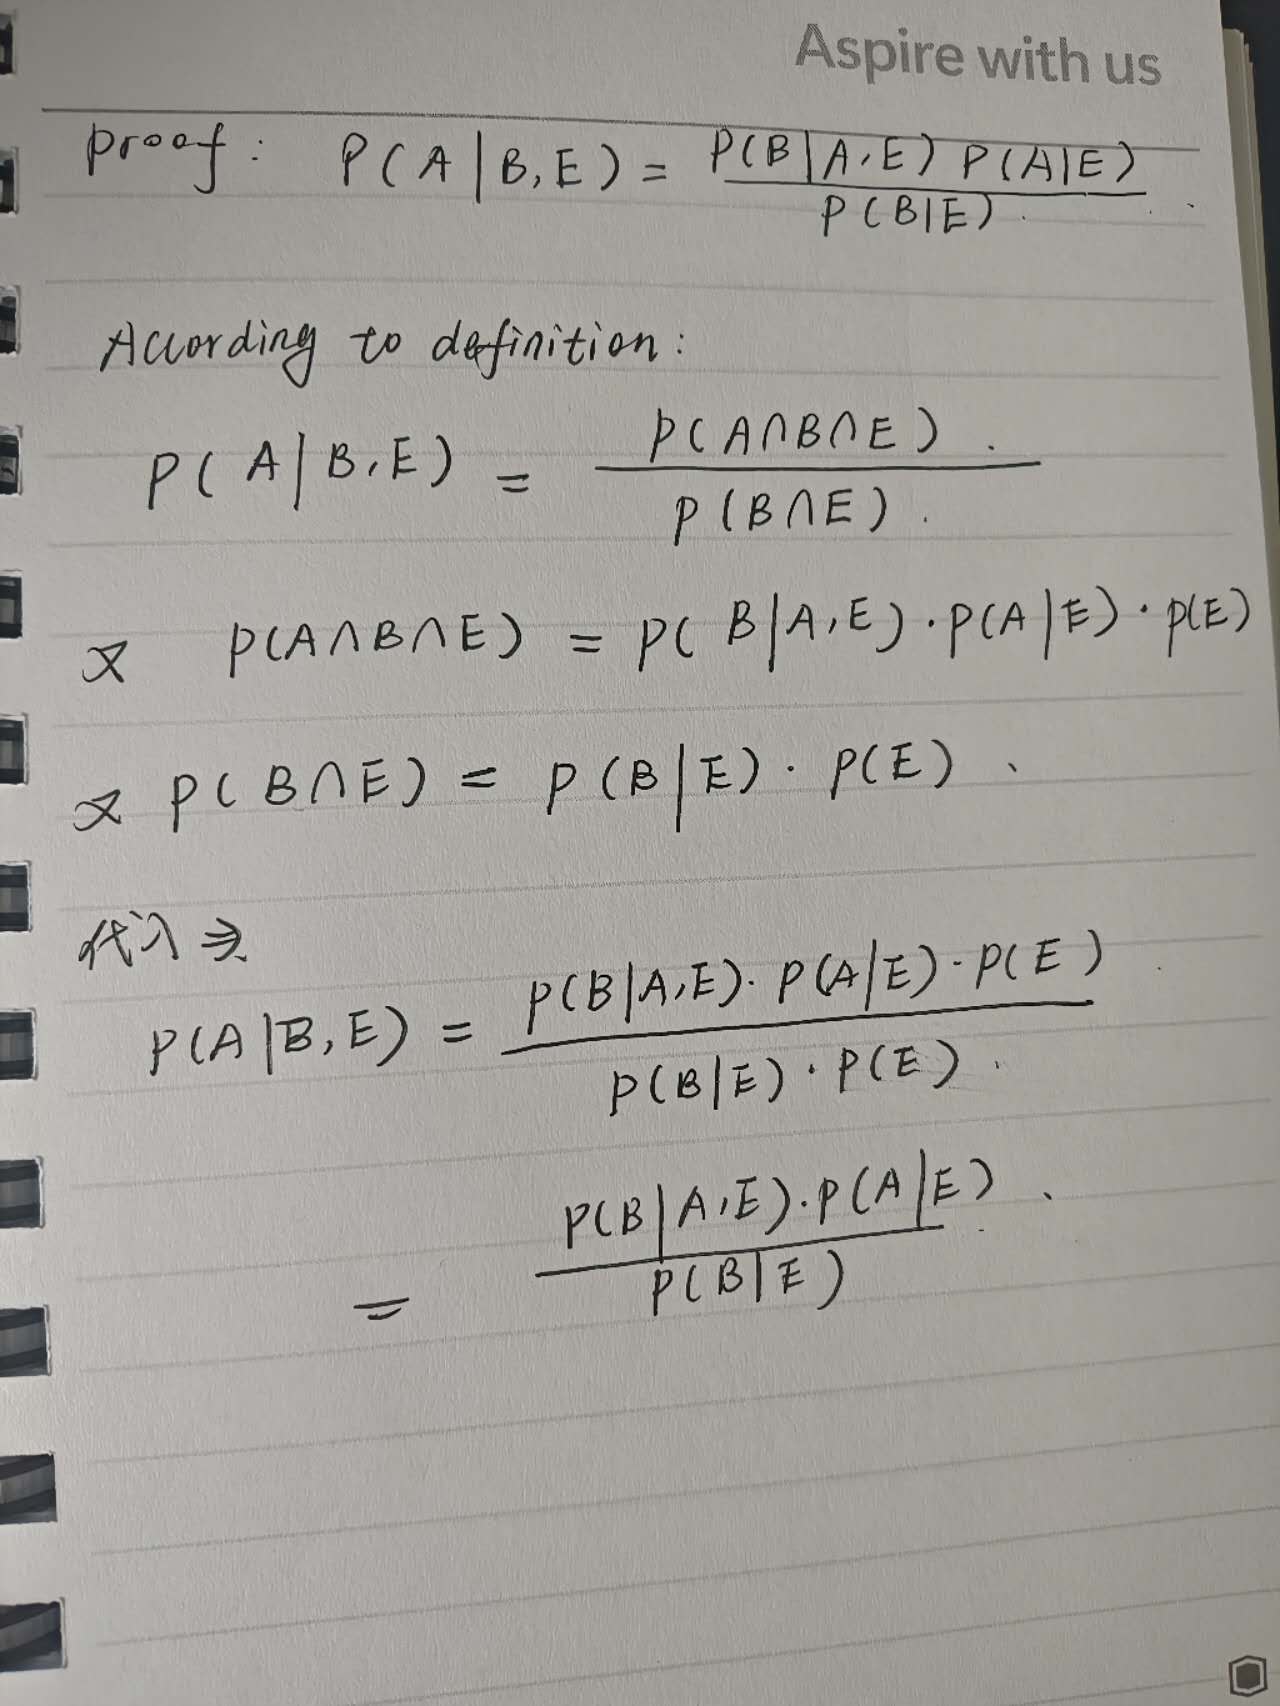 Aspire with us
proof: P(A|B,E) = P(B|A,E) P(A|E) / P(B|E).
According to definition:
P(A|B,E) = P(A∩B∩E). / P(B∩E).
又 P(A∩B∩E) = P(B|A,E)·P(A|E)·P(E)
又 P(B∩E) = P(B|E)·P(E).
代入⇒
P(A|B,E) = P(B|A,E)·P(A|E)·P(E) / P(B|E)·P(E).
= P(B|A,E)·P(A|E). / P(B|E)